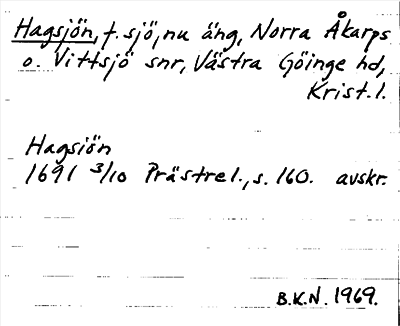 Hagsjön, f. sjö, nu äng, Norra Åkarps
o. Vittsjö snr, Västra Göinge hd,
Krist. l.
Hagsiön
1691 3/10 Prästrel., s. 160. avskr.
B.K.N. 1969.